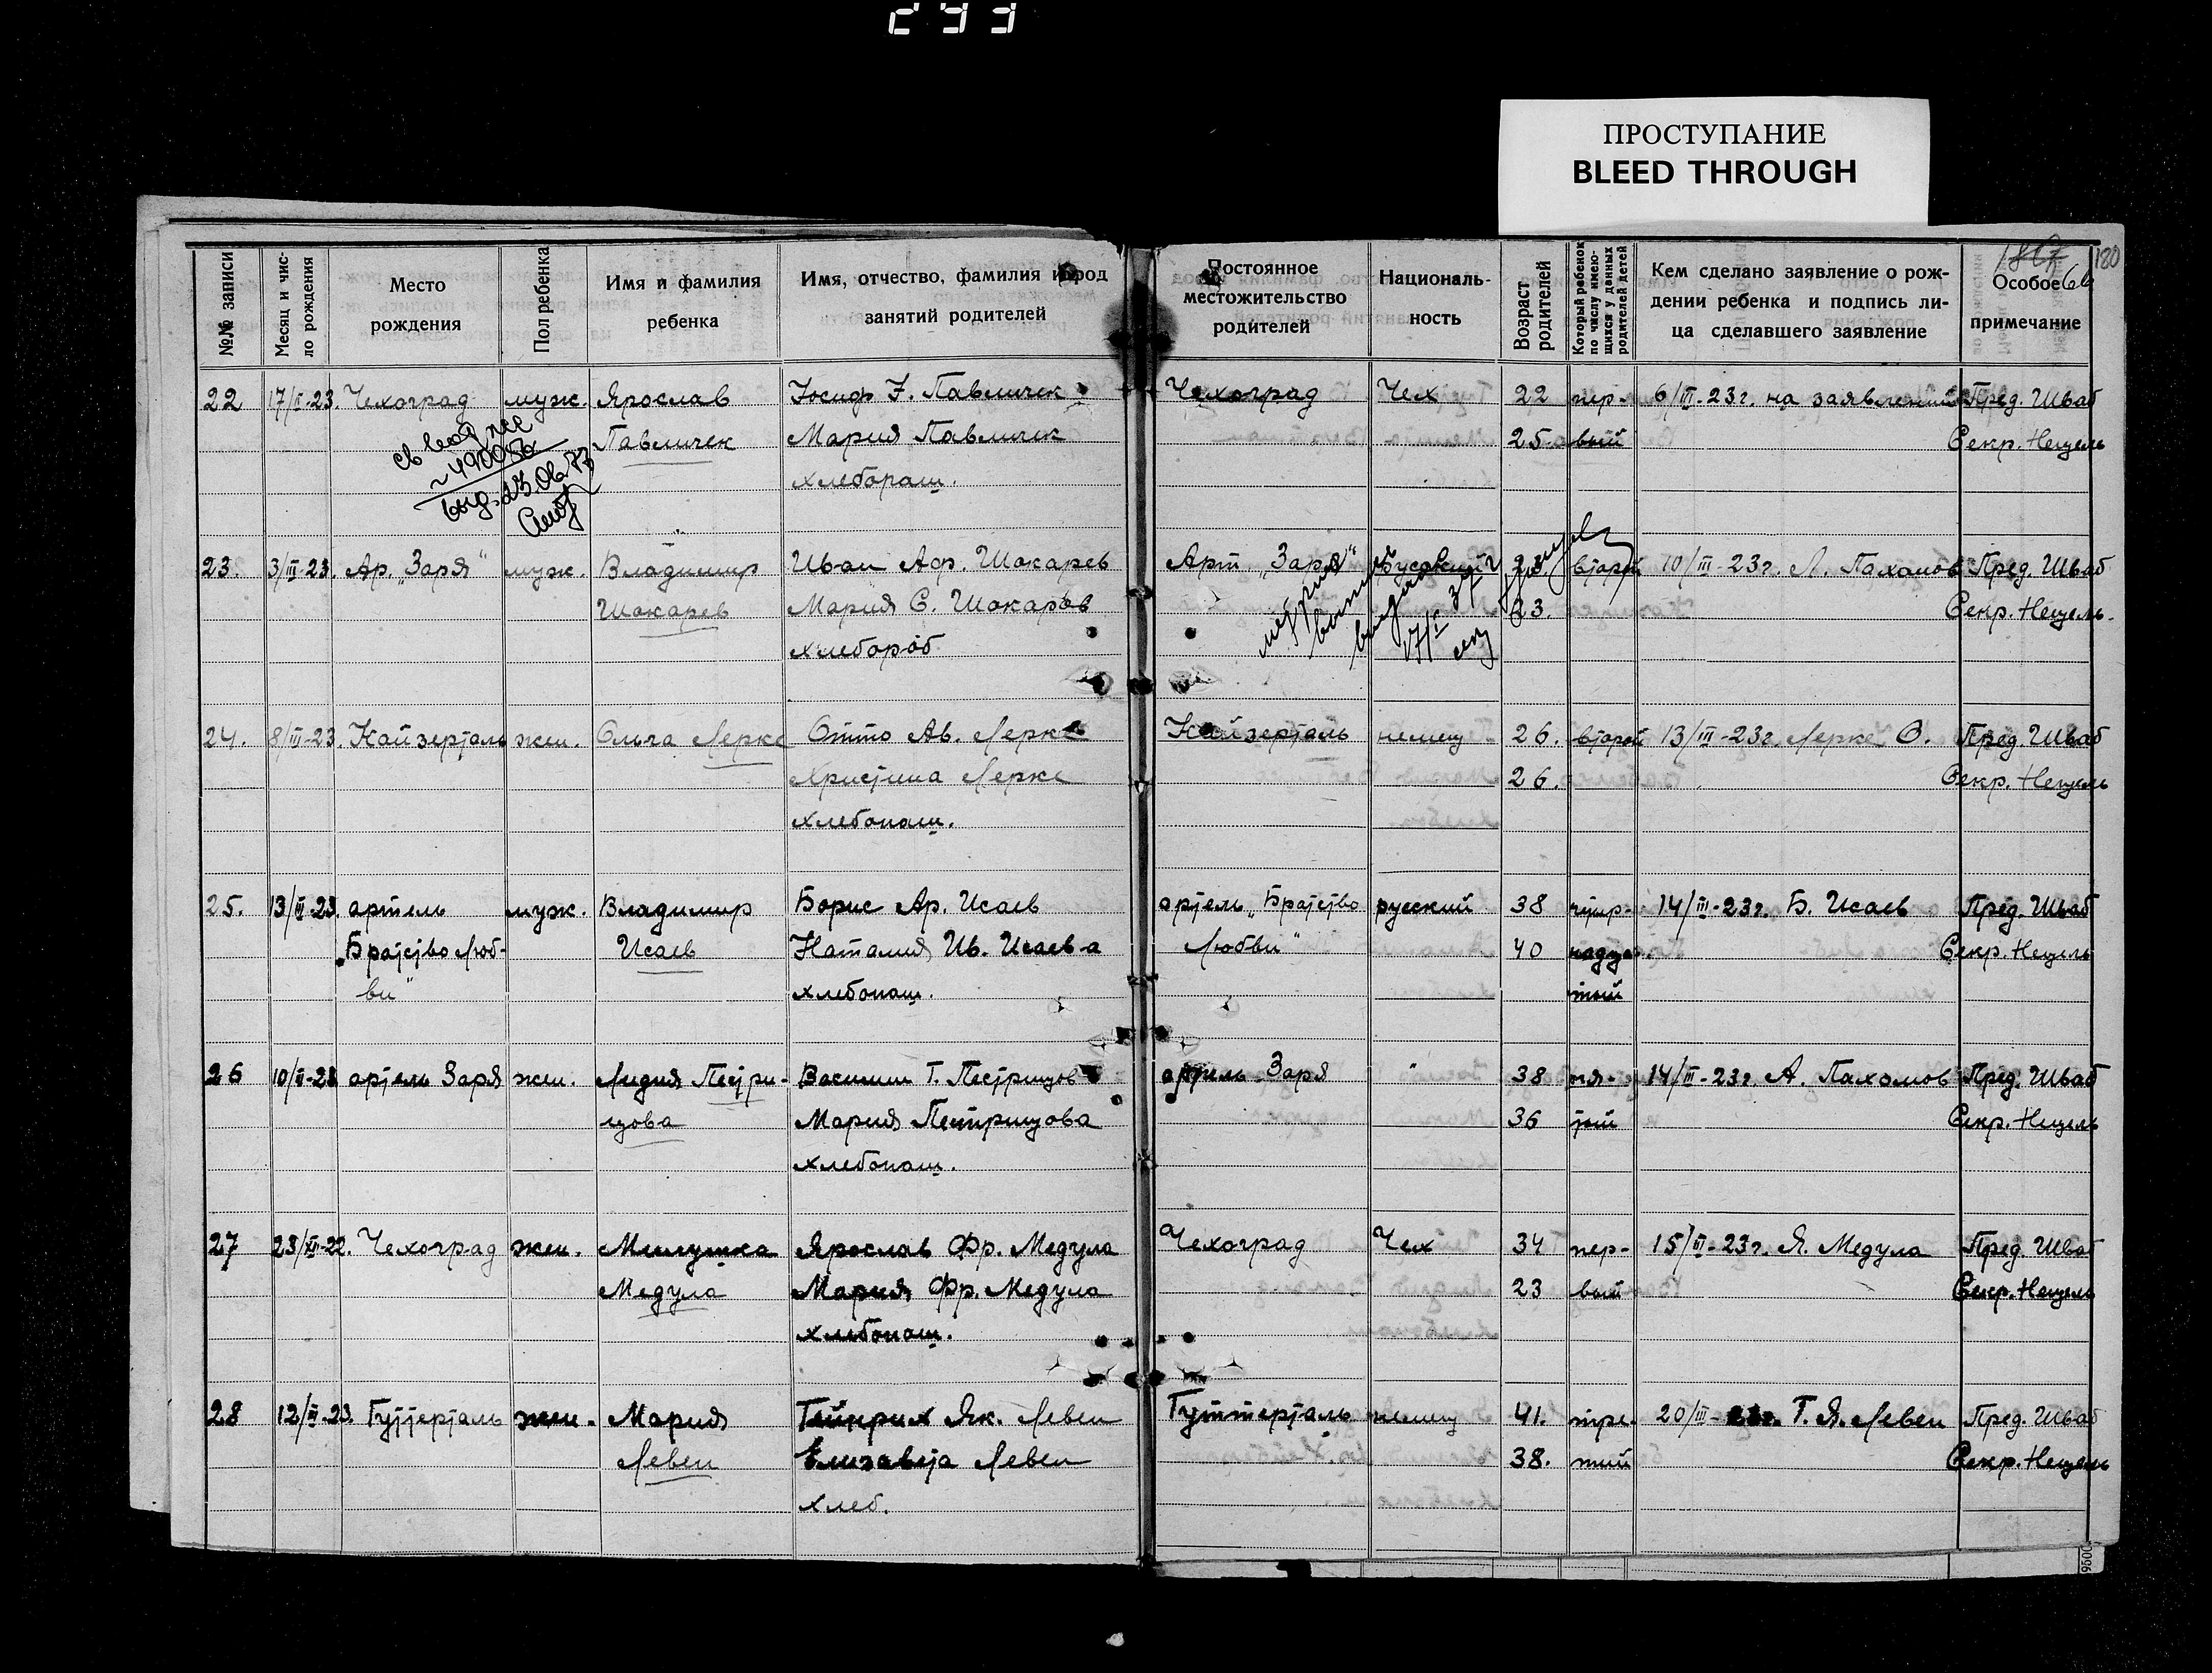 293
ПРОСТУПАНИЕ
BLEED THROUGH
120
№№ записи
Месяц и чис-
ло рождения
Место
рождения
Пол ребенка
Имя и фамилия
ребенка
Имя, отчество, фамилия и род
занятий родителей
Постоянное
местожительство
родителей
Националь-
ность
Возраст
родителей
Который ребенок
по числу имею-
щихся у данных
родителей детей
Кем сделано заявление о рож-
дении ребенка и подпись ли-
ца сделавшего заявление
Особое
примечание
22 17/II-23. Чехоград муж. Ярослав Иосиф И. Павличек Чехоград Чех 22 пер- 6/III-23г. на заявлении Пред. Шваб
Павличек Мария Павличек 25. вый Секр. Нецель
хлебопаш.
выд. 23.02.77
23. 3/III-23. Ар. „Заря" муж. Владимир Иван Аф. Шокарев Арт „Заря" Русский 23 второй 10/III-23г. А. Пахомов Пред. Шваб
Шокарев Мария С. Шокарев 23. Секр. Нецель.
хлебороб
24. 8/III-23. Кайзерталь жен. Ольга Лерке Отто Ав. Лерке Кайзерталь немец 26. второй 13/III-23г. Лерке О. Пред. Шваб
Христина Лерке 26. Секр. Нецель
хлебопаш.
25. 13/III-23. артель муж. Владимир Борис Ар. Исаев артель „Братство русский 38 трир- 14/III-23г. Б. Исаев Пред. Шваб
„Братство Люб- Исаев Наталия Ив. Исаева Любви" 40 надца- Секр. Нецель
ви" хлебопаш. тый
26 10/III-23 артель Заря жен. Лидия Пестри- Василий Т. Пестрицов артель Заря " 38 пя- 14/III-23г. А. Пахомов Пред. Шваб
цова Мария Пестрицова 36 тый Секр. Нецель
хлебопаш.
27 23/XII-22. Чехоград жен. Милушка Ярослав Фр. Медула Чехоград Чех 34 пер- 15/III-23г. Я. Медула Пред. Шваб
Медула Мария Фр. Медула 23 вый Секр. Нецель
хлебопаш.
28 12/III-23. Гуттерталь жен. Мария Гейнрих Як. Левен Гуттерталь немец 41. тре- 20/III-23г. Г. Я. Левен Пред. Шваб
Левен Елизавета Левен 38. тий Секр. Нецель
хлеб.